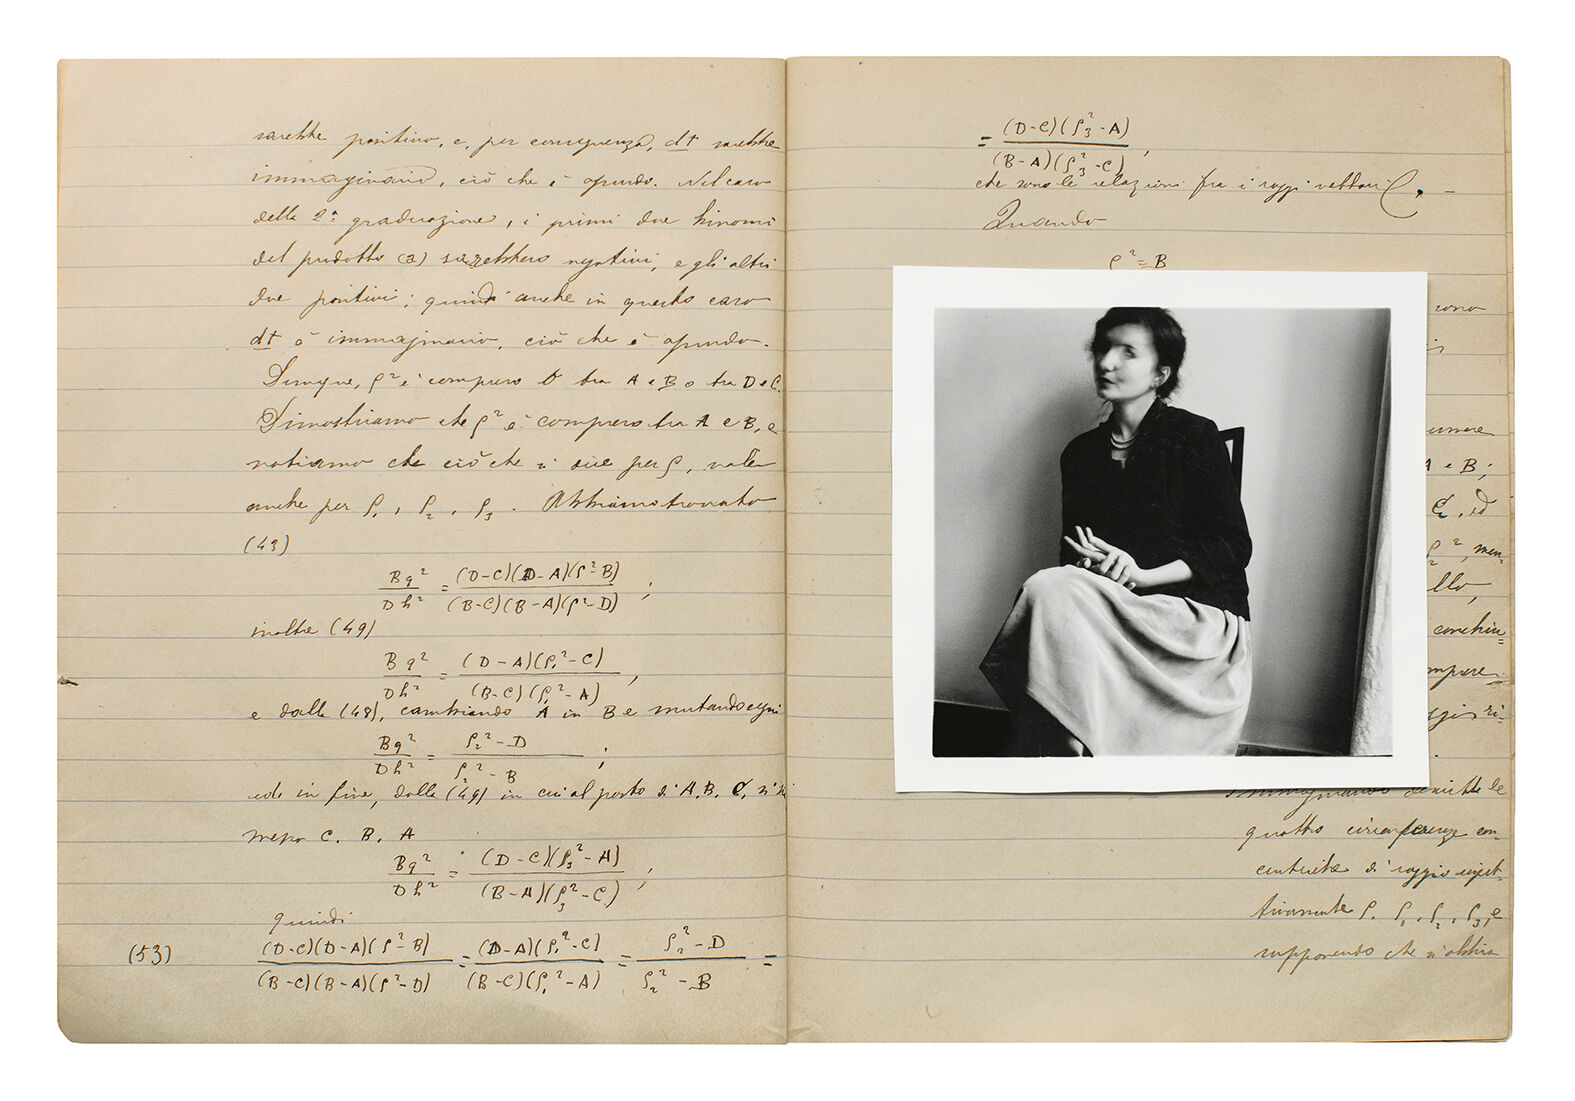 sarebbe positivo, e, per conseguenza, dt sarebbe
immaginario, ciò che è assurdo. Nel caso
della 2ª graduazione, i primi due binomi
del prodotto (a) sarebbero negativi, e gli altri
due positivi; quindi anche in questo caso
dt è immaginario, ciò che è assurdo.
Dunque, ρ² è compreso o tra A e B o tra D e C.
Dimostriamo che ρ² è compreso tra A e B, e
notiamo che ciò che si dice per ρ, vale
anche per ρ₁, ρ₂, ρ₃. Abbiamo trovato
(43)
Bg²/Dh² = (D-C)(D-A)(ρ²-B)/(B-C)(B-A)(ρ²-D) ;
inoltre (49)
Bg²/Dh² = (D-A)(ρ₁²-C)/(B-C)(ρ₁²-A) ,
e dalla (48), cambiando A in B e mutando
Bg²/Dh² = ρ₂²-D/ρ₂²-B ;
ed in fine, dalla (49) in cui al posto di A, B, C, si
messo C. B. A
Bg²/Dh² = (D-C)(ρ₃²-A)/(B-A)(ρ₃²-C) ;
quindi
(53) (D-C)(D-A)(ρ²-B)/(B-C)(B-A)(ρ²-D) = (D-A)(ρ₁²-C)/(B-C)(ρ₁²-A) = ρ₂²-D/ρ₂²-B =
= (D-C)(ρ₃²-A)/(B-A)(ρ₃²-C) ,
che sono le relazioni fra i raggi vettori. –
Quando
ρ²=B
sono
umere
A e B;
C, ed
ρ₂², men-
llo,
conchiu=
mpare
ggi ri-
Immaginando descritte le
quattro circonferenze con-
centriche di raggio rispet-
tivamente ρ, ρ₁, ρ₂, ρ₃, e
supponendo che s'abbia